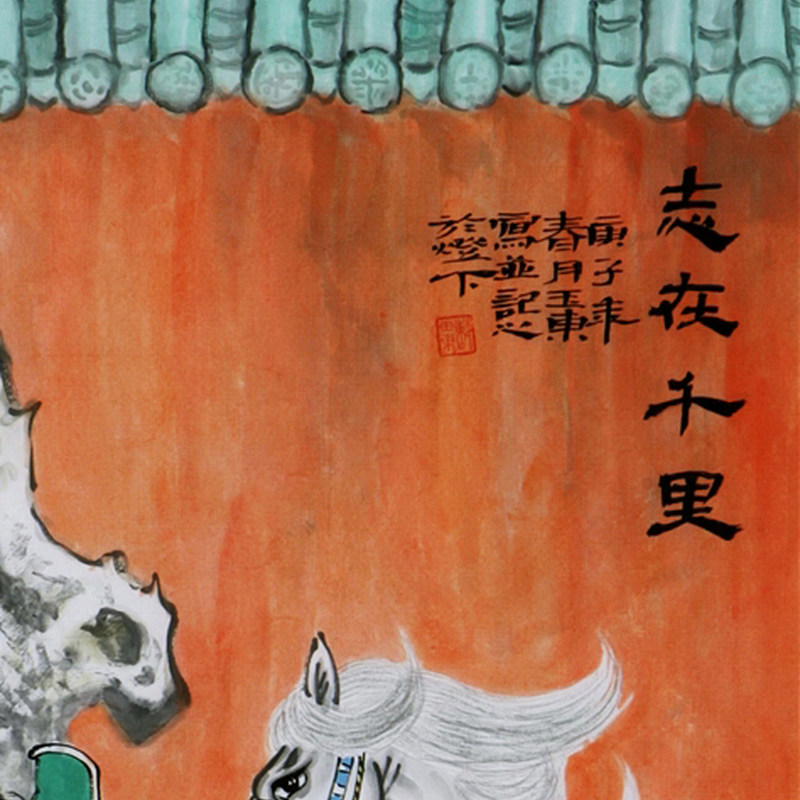 志在千里
庚子年
春月玉東
寫並記
於燈下